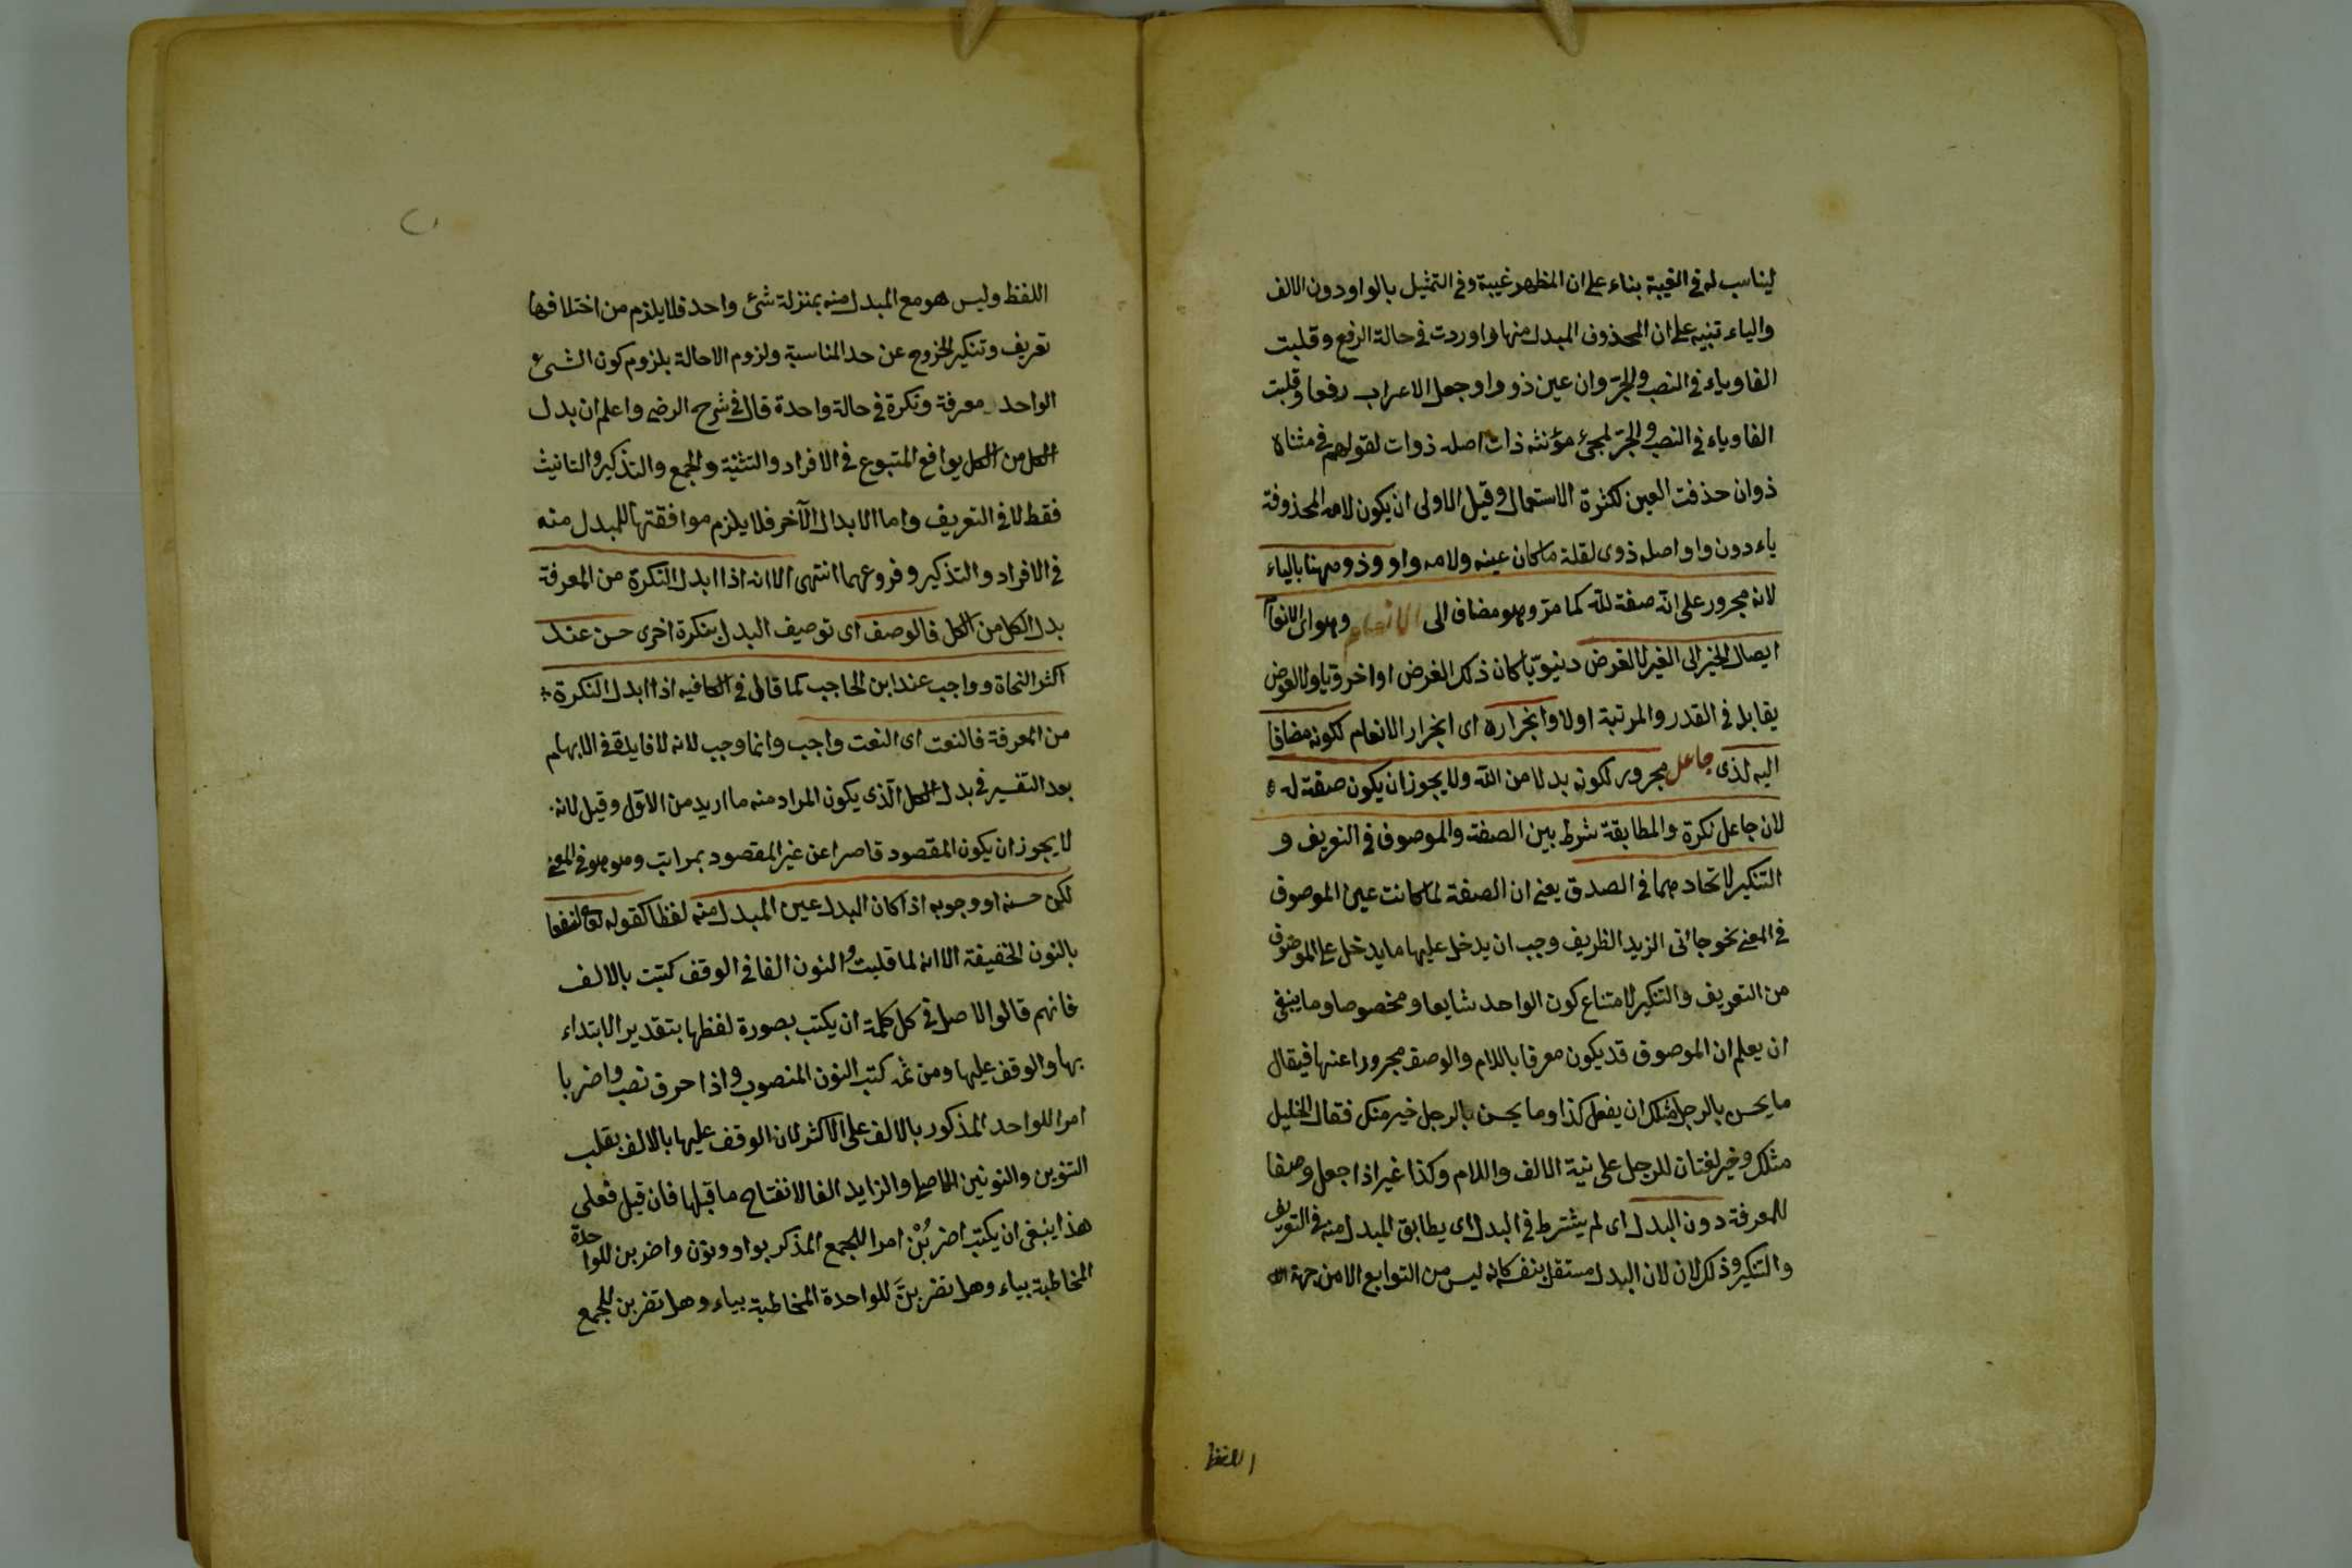 ليناسب له في الغيبة بناء على ان المظهر غيبة وفي التمثيل بالواو دون الالف
والياء تنبيه على ان المحذوف المبدل منها واو وردت في حالة الرفع وقلبت
الفا وياء في النصب والجر وان عين ذو واو وجعل الاعراب رفعا وقلبت
الفا وياء في النصب والجر لمجئ مؤنثه ذات اصله ذوات لقولهم في مثناه
ذوان حذفت العين لكثرة الاستعمال وقيل الاولى ان يكون لامه المحذوفة
ياء دون واو اصله ذوى لقلة ما كان عينه ولامه واو وذو ههنا بالياء
لانه مجرور على انه صفة لله كما مر وهو مضاف الى الانعام وهو اى الانعام
ايصال الخير الى الغير لا لغرض دنيويا كان ذلك الغرض او اخرويا ولا لعوض
يقابل في القدر والمرتبة اولا وانجراره اى انجرار الانعام لكونه مضافا
اليه لذى جاعل مجرور لكونه بدلا من الله ولا يجوز ان يكون صفة له
لان جاعل نكرة والمطابقة شرط بين الصفة والموصوف في التعريف و
التنكير لاتحادهما في الصدق يعنى ان الصفة لما كانت عين الموصوف
في المعنى نحو جائنى الزيد الظريف وجب ان يدخل عليها ما يدخل على الموصوف
من التعريف والتنكير لامتناع كون الواحد شايعا ومخصوصا وما ينبغي
ان يعلم ان الموصوف قد يكون معرفا باللام والوصف مجرورا عنها فيقال
ما يحسن بالرجل مثلك ان يفعل كذا وما يحسن بالرجل خير منك فقال الخليل
مثلك وخير لغتان للرجل على نية الالف واللام وكذا غير اذا جعل وصفا
للمعرفة دون البدل اى لم يشترط في البدل اى يطابق المبدل منه في التعريف
والتنكير وذلك لان لان البدل مستقل بنفسه كانه ليس من التوابع الا من جهة
اللفظ
اللفظ وليس هو مع المبدل منه بمنزلة شئ واحد فلا يلزم من اختلافها
تعريف وتنكير الخروج عن حد المناسبة ولزوم الاحالة بلزوم كون الشئ
الواحد معرفة ونكرة في حالة واحدة قال في شرح الرضى واعلم ان بدل
الكل من الكل يوافع المتبوع في الافراد والتثنية والجمع والتذكير والتانيث
فقط لا في التعريف واما الابدال الآخر فلا يلزم موافقتها للمبدل منه
في الافراد والتذكير وفروعهما انتهى الا انه اذا ابدل النكرة من المعرفة
بدل الكل من الكل فالوصف اى توصيف البدل بنكرة اخرى حسن عند
اكثر النحاة وواجب عند ابن الحاجب كما قال في الكافيه اذا ابدل النكرة
من المعرفة فالنعت اى النعت واجب وانما وجب لانه لا فايدة في الابهام
بعد التفسير في بدل الكل الذى يكون المراد منه ما اريد من الاول وقيل لانه
لا يجوز ان يكون المقصود قاصرا عن غير المقصود بمراتب وهو هو في المعنى
لكن حسنه او وجوبه اذا كان البدل عين المبدل منه لفظا كقوله تعالى لنسفعا
بالنون الخفيفة الا انه لما قلبت النون الفا في الوقف كتبت بالالف
فانهم قالوا الاصل في كل كلمة ان يكتب بصورة لفظها بتقدير الابتداء
بها والوقف عليها ومن ثمه كتب النون المنصوب واذا حرف نصب واضربا
امرا للواحد المذكور بالالف على الاكثر لان الوقف عليها بالالف بقلب
التنوين والنونين الاصلى والزايد الفا لانفتاح ما قبلها فان قيل فعلى
هذا ينبغى ان يكتب اضربُنْ امرا للجمع المذكر بواو ونون واضربن للواحدة
المخاطبة بياء وهل تضربنَّ للواحدة المخاطبة بياء وهل تضربن للجمع